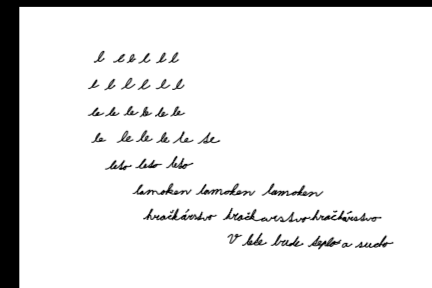 l l l l l l
l l l l l l
le le le le le le
le le le le le le
leto leto leto
lamoken lamoken lamoken
hračkárstvo hračkarstvo hračkárstvo
V lete bude teplo a sucho